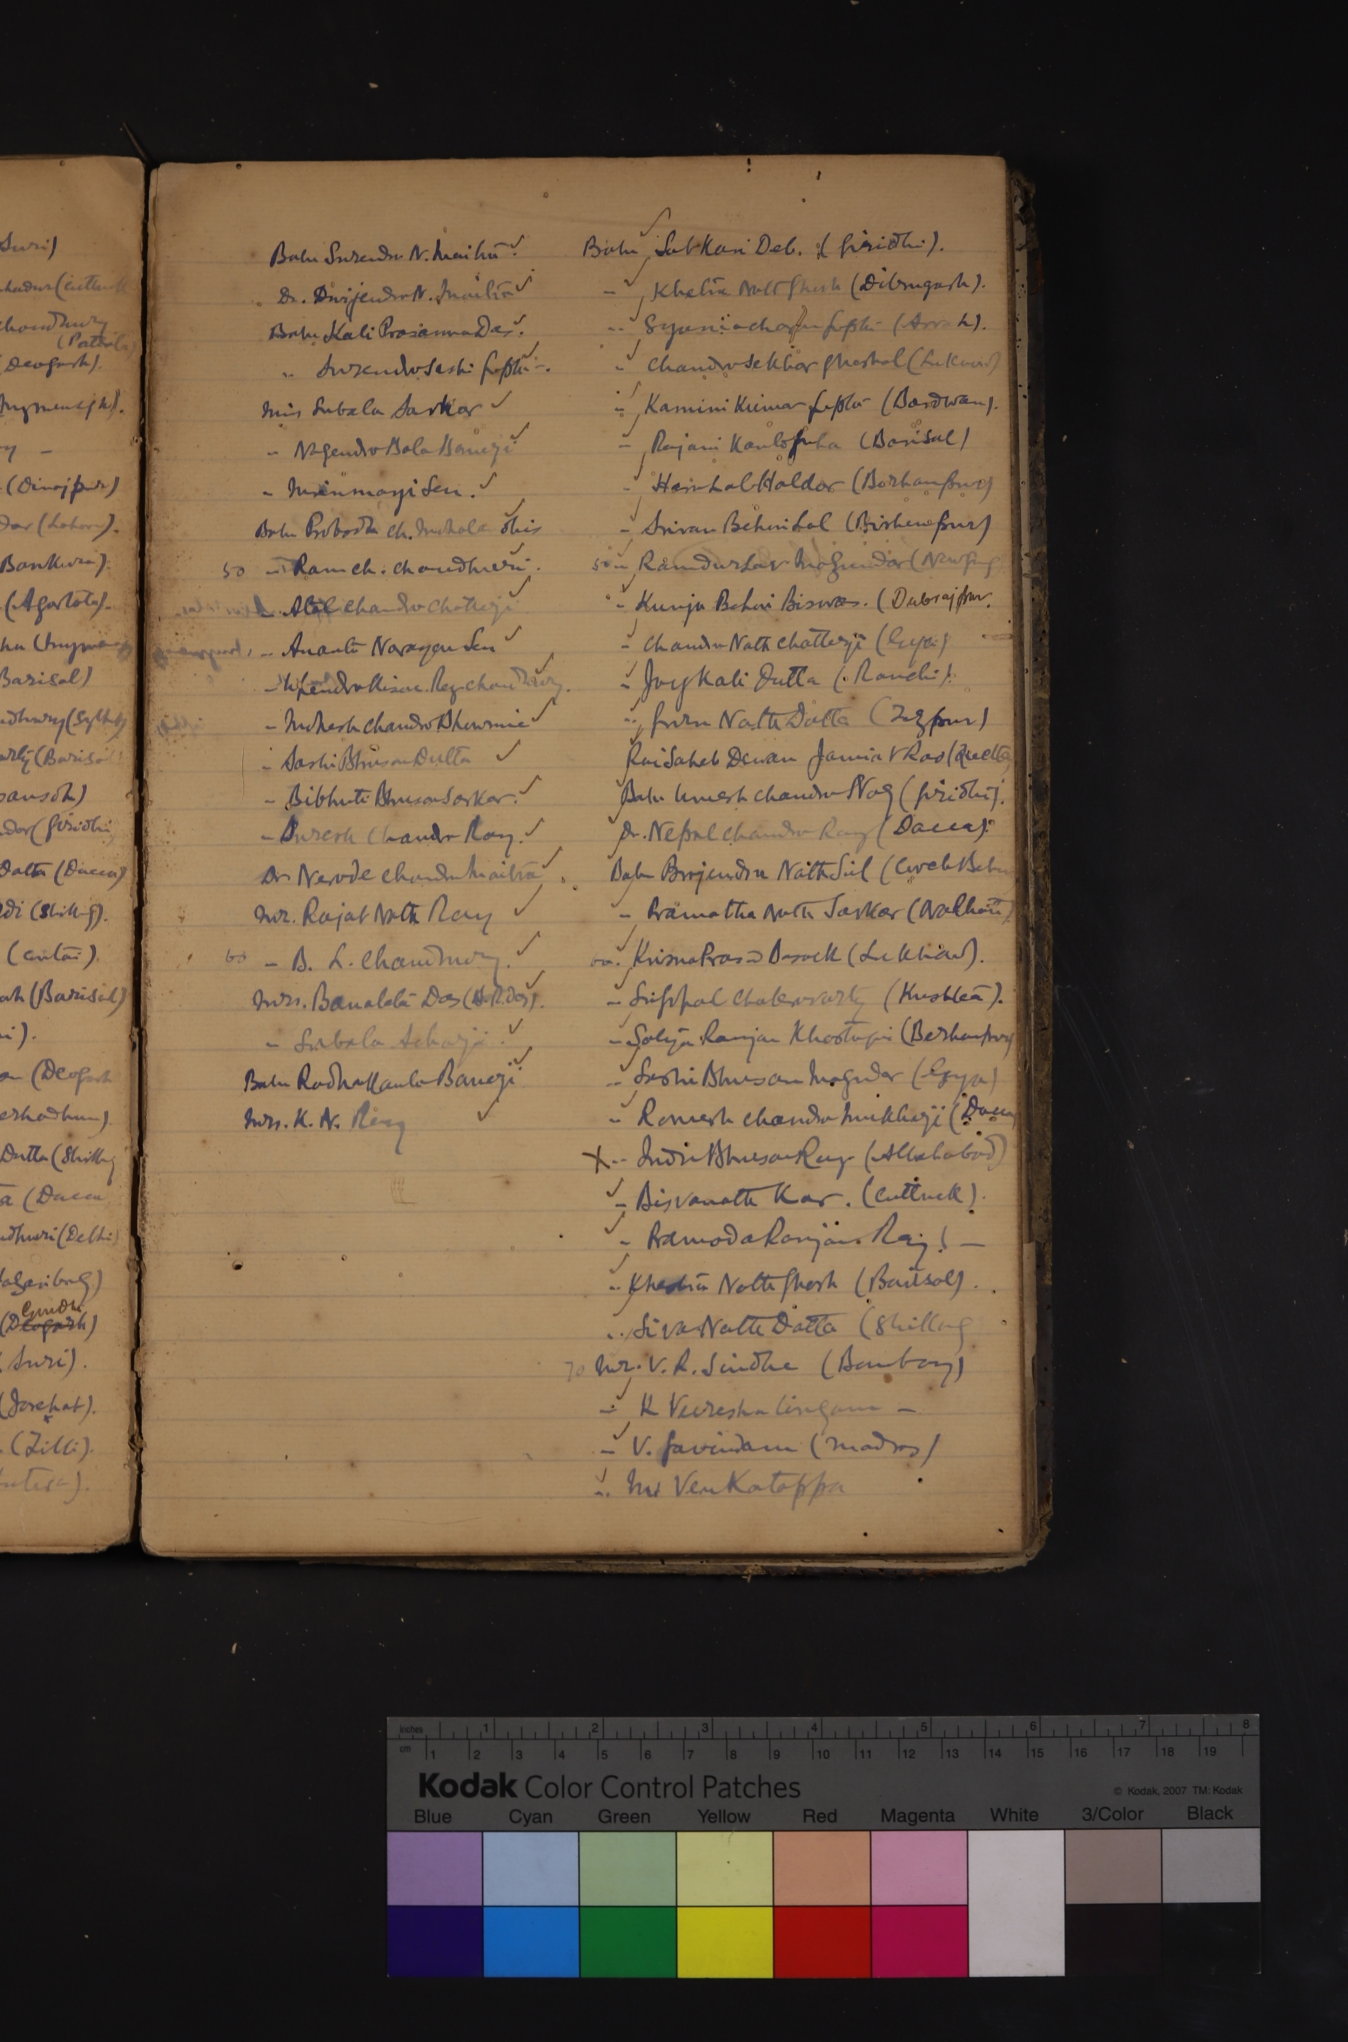 Suri)
(Cuttack
Choudhury
(Patiala)
(Deogarh).
(Dinajpur)
(Lahore).
Bankura).
(Agartala).
Barisal)
(Sylhet)
(Barisal)
(Giridhi)
Datta (Dacca)
(Shillong).
(Contai).
(Barisal)
(Deogarh
Dutta (Shillong
(Dacca
(Delhi)
Hazaribag)
(Deogarh)
Suri).
(Jorehat).
Babu Surendra N. Maitra ✓
Dr. Dwijendra N. Maitra ✓
Babu Kali Prasanna Das. ✓
" Surendra Sashi Gupta ✓
Miss Subala Sarkar ✓
- Nagendra Bala Banerji ✓
- Mrinmoyi Sen. ✓
Babu Probodh Ch. Mohalanobis
50 - Ram Ch. Choudhuri.
- Atul Chandra Chatterji ✓
- Ananta Narayan Sen ✓
- Upendra Kisore Ray Choudhury.
- Mohesh Chandra Bhowmic ✓
- Sashi Bhusan Dutta ✓
- Bibhuti Bhusan Sarkar. ✓
- Suresh Chandra Ray. ✓
Dr Nerode Chandra Maitra ✓
Mr. Rajat Nath Ray ✓
60 - B. L. Chaudhury. ✓
Mrs. Banalata Das (H.R. Das). ✓
- Subala Acharji. ✓
Babu Radha Kanta Banerji ✓
Mrs. K. N. Ray ✓
Babu Sat Kari Deb. (Giridhi).
- Khetra Nath Ghosh (Dibrugarh).
" Gupta (Arrah).
- Chandra Sekhar Ghoshal (Luknow)
- Kamini Kumar Gupta (Bardwan).
- Rajani Kanta Guha (Barisal)
- Haralal Haldar (Berhampur)
- Behari Lal (Bishenpur)
50 - Ramdurlav Mazumdar (Nowgong
- Kunja Behari Biswas. (Dubrajpur.
- Chandra Nath Chatterji (Gya)
- Joy Kali Dutta (Ranchi).
" Guru Nath Datta (Tezpur)
Rai Saheb Dewan Jamiat Rao (Quetta)
Babu Umesh Chandra Nag (Giridhi).
Dr. Nepal Chandra Ray (Dacca).
Babu Brojendra Nath Sil (Cooch Behar
- Pramatha Nath Sarkar (Nalhati)
60. Krisna Prasad Basack (Lukhnow).
- Sripal Chakravarty (Kushtea).
- Satya Ranjan Khastagir (Berhampur)
" Sashi Bhusan Mazumdar (Gya)
- Romesh Chandra Mukharji (Dacca
X " Indu Bhusan Ray (Allahabad)
- Bisvanath Kar. (Cuttack).
- Pramoda Ranjan Ray! —
" Khetra Nath Ghosh (Barisal).
" Siva Nath Datta (Shillong
70 Mr. V. R. Sindhe (Bombay)
" K Veeresha lingam —
- V. Govindam (Madras)
" Mr Venkatappa
inches 1 2 3 4 5 6 7 8
cm 1 2 3 4 5 6 7 8 9 10 11 12 13 14 15 16 17 18 19
Kodak Color Control Patches
© Kodak, 2007 TM: Kodak
Blue Cyan Green Yellow Red Magenta White 3/Color Black